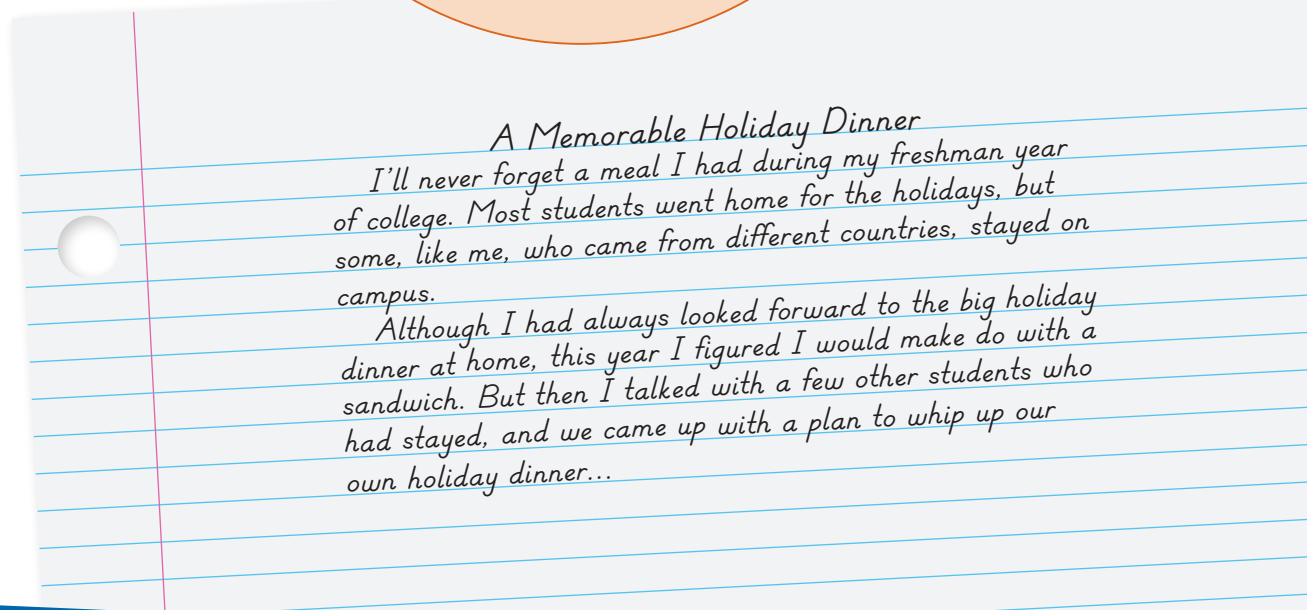 A Memorable Holiday Dinner
I'll never forget a meal I had during my freshman year
of college. Most students went home for the holidays, but
some, like me, who came from different countries, stayed on
campus.
Although I had always looked forward to the big holiday
dinner at home, this year I figured I would make do with a
sandwich. But then I talked with a few other students who
had stayed, and we came up with a plan to whip up our
own holiday dinner...